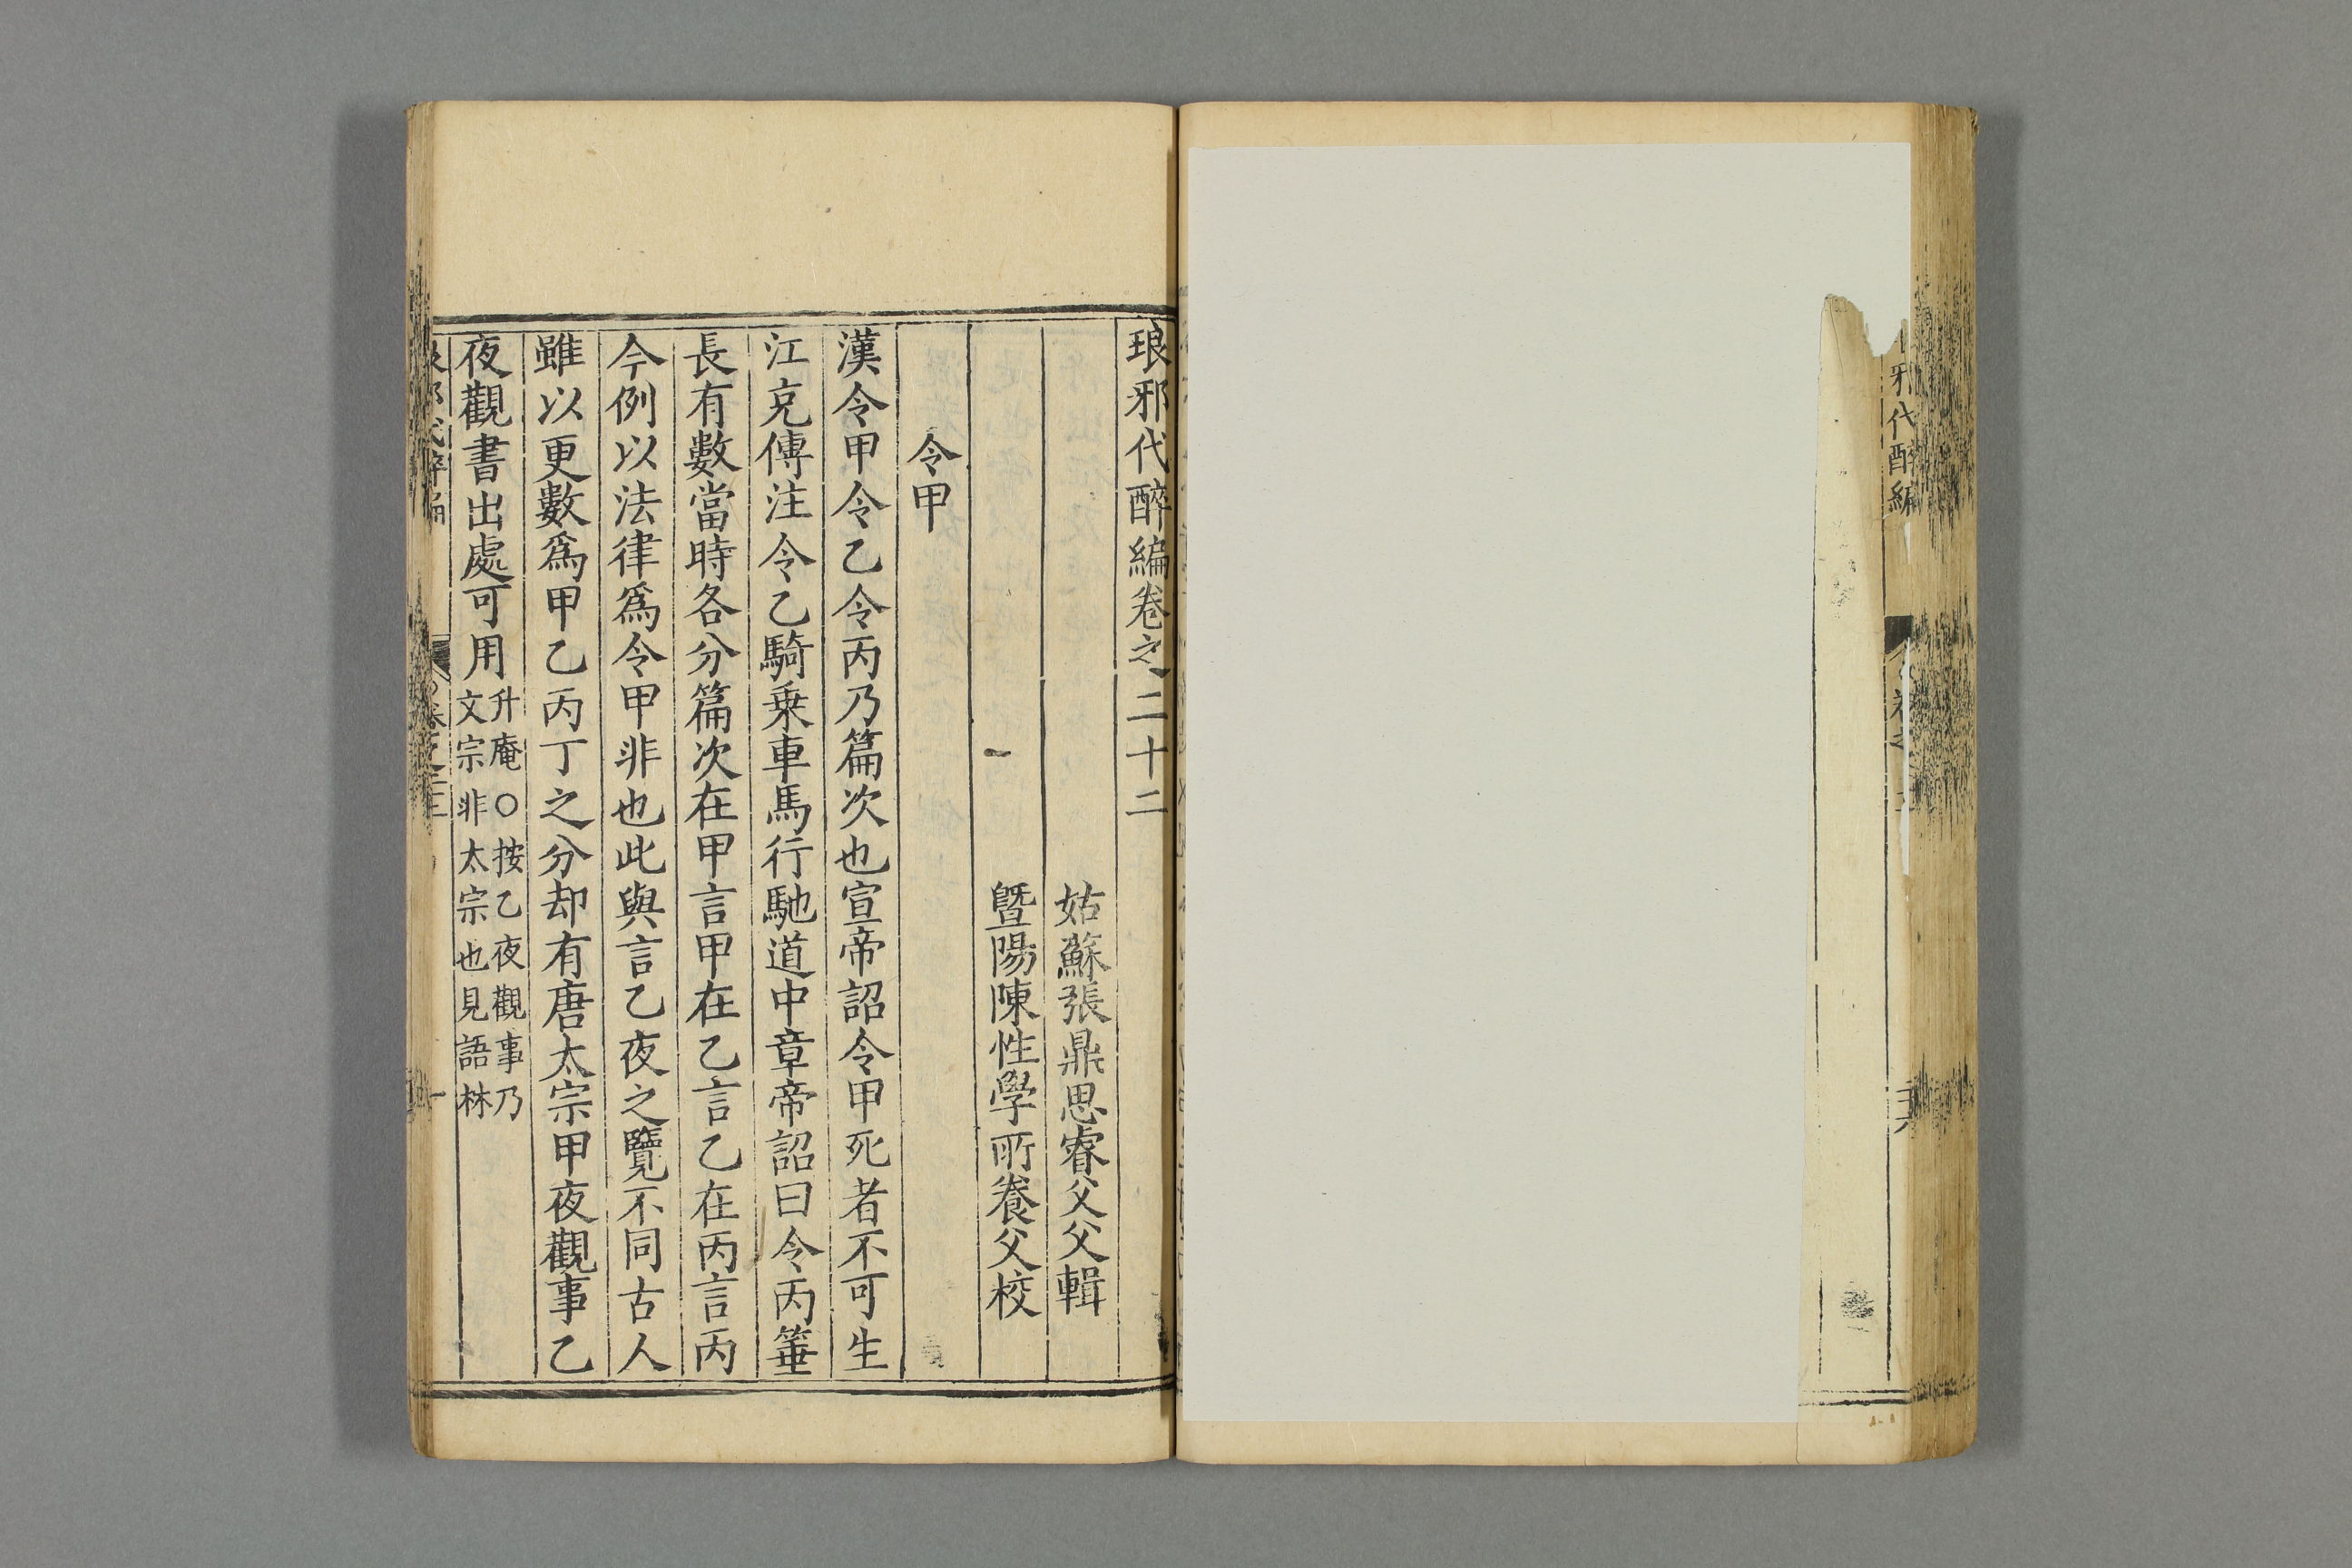 邪代醉編
琅邪代醉編卷之二十二
姑蘇張鼎思睿父父輯
曁陽陳性學所養父校
令甲
漢令甲令乙令丙乃篇次也宣帝詔令甲死者不可生
江充傳注令乙騎乗車馬行馳道中章帝詔曰令丙箠
長有數當時各分篇次在甲言甲在乙言乙在丙言丙
今例以法律爲令甲非也此與言乙夜之覽不同古人
雖以更數爲甲乙丙丁之分却有唐太宗甲夜觀事乙
夜觀書出處可用升庵○按乙夜觀事乃
文宗非太宗也見語林